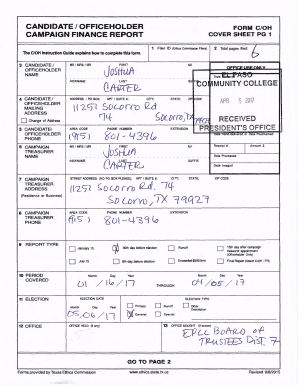 CANDIDATE / OFFICEHOLDER
CAMPAIGN FINANCE REPORT
FORM C/OH
COVER SHEET PG 1
The C/OH Instruction Guide explains how to complete this form.
1 Filer ID (Ethics Commission Filers)
2 Total pages filed:
6
3 CANDIDATE / OFFICEHOLDER NAME
MS / MRS / MR FIRST MI
JOSHUA
NICKNAME LAST SUFFIX
CARTER
OFFICE USE ONLY
EL PASO
COMMUNITY COLLEGE
APR 5 2017
RECEIVED
PRESIDENT'S OFFICE
4 CANDIDATE / OFFICEHOLDER MAILING ADDRESS
Change of Address
ADDRESS / PO BOX; APT / SUITE #; CITY; STATE;
11251 Socorro Rd
74 Socorro, TX
5 CANDIDATE/ OFFICEHOLDER PHONE
AREA CODE PHONE NUMBER EXTENSION
(915) 801-4396
Receipt # Amount $
Date Processed
Date Imaged
6 CAMPAIGN TREASURER NAME
MS / MRS / MR FIRST MI
JOSHUA
NICKNAME LAST SUFFIX
CARTER
7 CAMPAIGN TREASURER ADDRESS
(Residence or Business)
STREET ADDRESS (NO PO BOX PLEASE); APT / SUITE #; CITY; STATE; ZIP CODE
11251 Socorro Rd. 74
Socorro, TX 79927
8 CAMPAIGN TREASURER PHONE
AREA CODE PHONE NUMBER EXTENSION
(915) 801-4396
9 REPORT TYPE
January 15
30th day before election
Runoff
15th day after campaign treasurer appointment (Officeholder Only)
July 15
8th day before election
Exceeded $500 limit
Final Report (Attach C/OH - FR)
10 PERIOD COVERED
Month Day Year
01 / 16 / 17
THROUGH
Month Day Year
04 / 05 / 17
11 ELECTION
ELECTION DATE
Month Day Year
05 / 06 / 17
ELECTION TYPE
Primary
Runoff
Other Description
General
Special
12 OFFICE
OFFICE HELD (if any)
13 OFFICE SOUGHT (if known)
EPCC BOARD OF
TRUSTEES DIST. 7
GO TO PAGE 2
Forms provided by Texas Ethics Commission
www.ethics.state.tx.us
Revised 9/8/2015